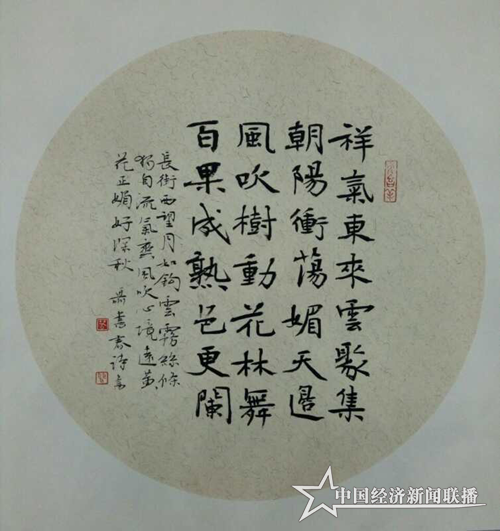 祥氣東來雲聚集
朝陽衝蕩媚天邊
風吹樹動花林舞
百果成熟色更闌
長街西望月如鉤雲霧絲條
獨自流氣爽風吹心境遠黃
花正媚好深秋
中国经济新闻联播